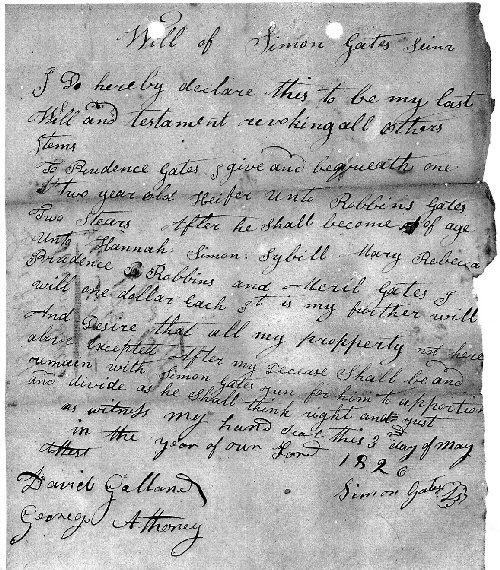 Will of Simon Gates Seinr
I Do hereby declare this to be my last
Will and testament revoking all others
Items
To Prudence Gates I give and bequeath one
two year old Heifer Unto Robbins Gates
Two Stears After he shall become of age
Unto Hannah Simon Sybill Mary Rebecca
Prudence Robbins and Meril Gates I
will one dollar each It is my further will
And Desire that all my propperty not here
above Excepted After my Decease Shall be and
remain with Simon Gates Jun for him to apportion
and divide as he Shall think right and just
as witness my hand Seal this 3rd day of May
in the year of our Lord 1826
Attest
Simon Gates
David Galland
George Athoney